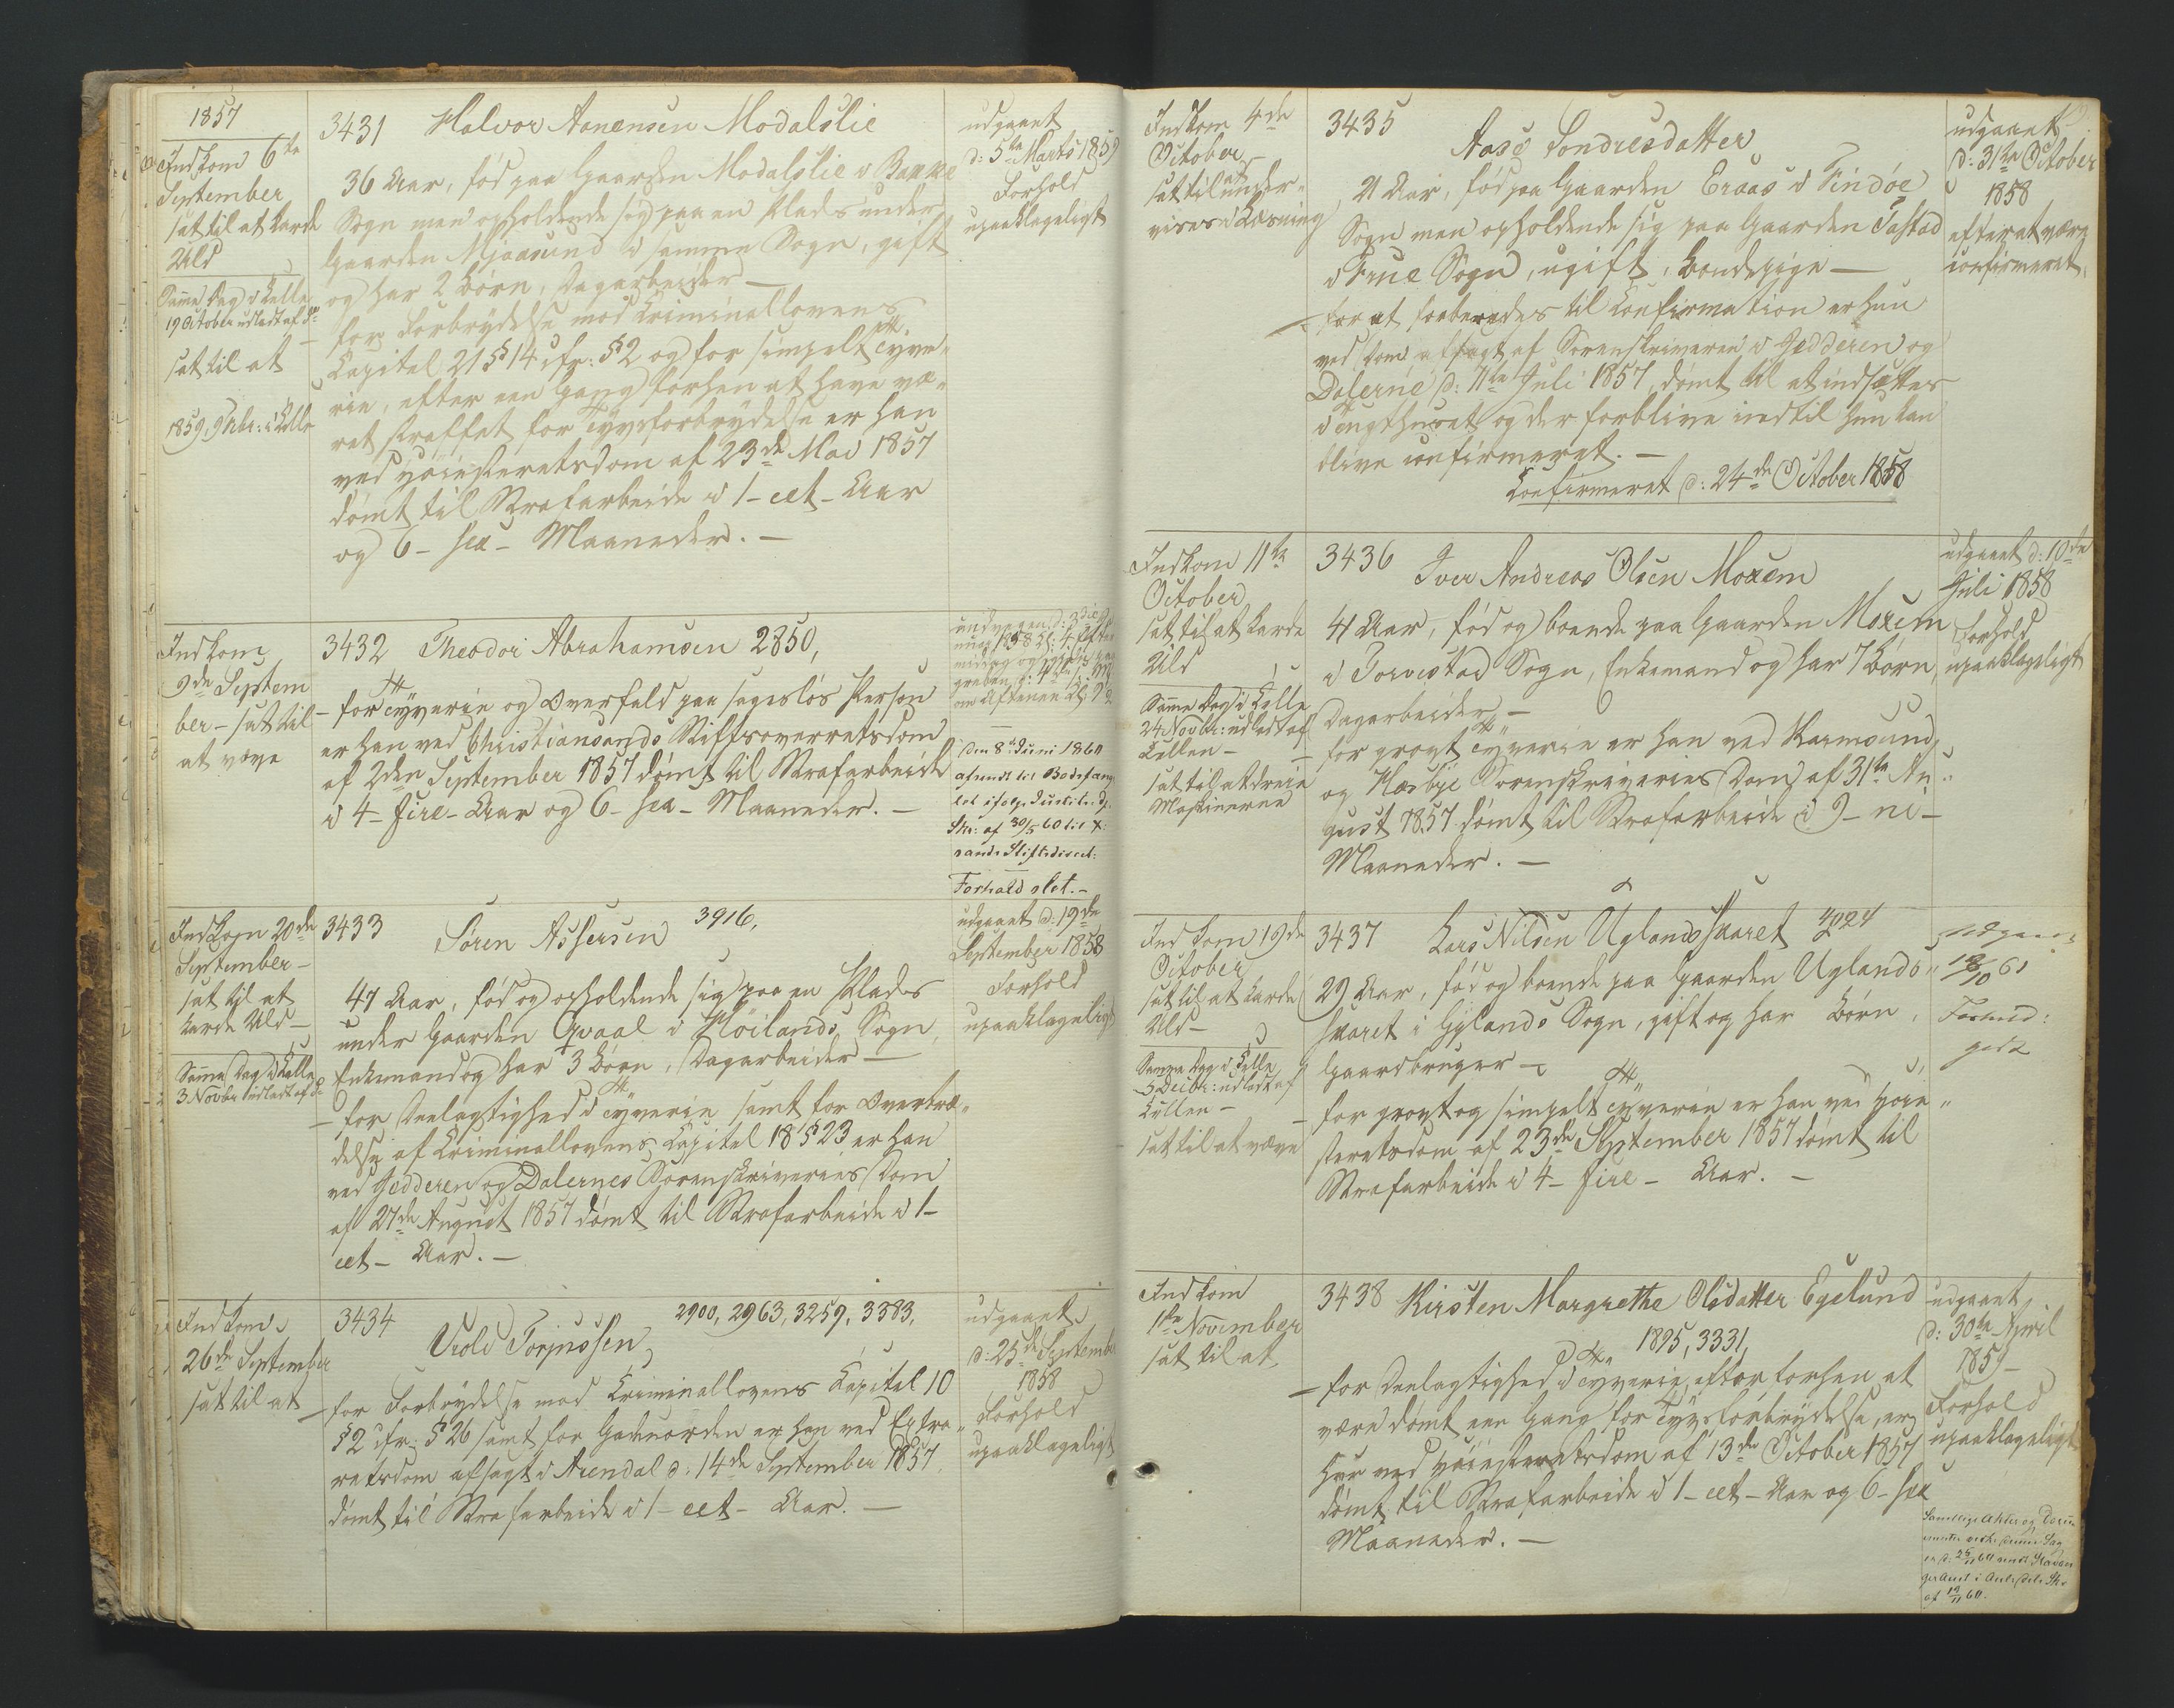 1857
Indkom 6te
September
sat til at karde
Uld
Samme Dag i Celle
19 October udladt af do
sat til at
1859, 9 Febr: i Celle
3431 Halvor Aanensen Modalslie
36 Aar, fød paa Gaarden Modalslie i Bakke
Sogn men opholdende sig paa en Plads under
Gaarden Mjaasund i samme Sogn, gift
og har 2 Børn, Dagarbeider —
for Forbrydelse mod Criminallovens
Capitel 21 § 14 cfr: § 2 og for simpelt Tyve-
rie, efter een Gang forhen at have væ-
ret straffet for Tyvsforbrydelse er han
ved Høiesteretsdom af 23de Mai 1857
dømt til Strafarbeide i 1 - eet - Aar
og 6 - sex - Maaneder. —
udgaaet
d: 5te Marts 1859
Forhold
upaaklageligt
Indkom
9de Septem
ber - sat til
at væve
3432 Theodor Abrahamsen 2850,
— for Tyverie og Overfald paa sagesløs Person
er han ved Christiansands Stiftsoverretsdom
af 2den September 1857 dømt til Strafarbeide
i 4 - fire - Aar og 6 - sex - Maaneder. —
undvegen d: 3die
1858 Kl. 4 Efter
middag og
greben d: 4de
om Aftenen Kl. 9
Den 8de Juni 1860
afsendt til Bodsfæng
let ifølge Justits. Dp.
Skr: af 30/5 60 til X.
sands Stiftsdirect:
Forhold slet. —
Indkom 20de
September —
sat til at
karde Uld —
Samme Dag i Celle
3 Novbr udladt af do
3433 Søren Assersen 3916,
47 Aar, fød og opholdende sig paa en Plads
under Gaarden Qvaal i Høilands Sogn,
Enkemand og har 3 Børn, Dagarbeider —
— for Deelagtighed i Tyverie samt for Overtræ-
delse af Criminallovens Capitel 18 § 23 er han
ved Jedderen og Dalernes Sorenskriveries Dom
af 27de August 1857 dømt til Strafarbeide i 1 -
eet - Aar. —
udgaaet d: 19de
September 1858
Forhold
upaaklageligt
Indkom
26de September
sat til at
3434 2900, 2963, 3259, 3383,
Terjussen
— for Forbrydelse mod Criminallovens Capitel 10
§ 2 cfr: § 26 samt for Gadeuorden er han ved Extra-
retsdom afsagt i Arendal d: 14de September 1857
dømt til Strafarbeide i 1 - eet - Aar. —
udgaaet
d: 25de September
1858
Forhold
upaaklageligt
Indkom 4de
October
sat til at under-
vises i Læsning
3435 Aase Tondresdatter
21 Aar, fød paa Gaarden Eraas i Findøe
Sogn men opholdende sig paa Gaarden Tastad
i Frue Sogn, ugift, Bondepige —
— for at forberedes til Confirmation er hun
ved Dom afsagt af Sorenskriveren i Jedderen og
Dalerne d: 11te Juli 1857, dømt til at indsættes
i Tugthuset og der forblive indtil hun kan
blive confirmeret. —
Confirmeret d: 24de October 1858
udgaaet
d: 31te October
1858
efter at være
confirmeret.
Indkom 11te
October
sat til at karde
Uld
Samme Dag i Celle
24 Novbr: udladt af
Cellen —
sat til at dreie
Maskinerne
3436 Iver Andreas Olsen Moxem
41 Aar, fød og boende paa Gaarden Moxem
i Torvestad Sogn, Enkemand og har 7 Børn,
Dagarbeider —
— for grovt Tyverie er han ved Karmsund
og Hesbye Sorenskriveries Dom af 31te Au-
gust 1857 dømt til Strafarbeide i 9 - ni -
Maaneder. —
udgaaet d: 10de
Juli 1858
Forhold
upaaklageligt
Indkom 19de
October
sat til at karde
Uld —
Samme Dag i Celle
5 Decbr: udladt af
Cellen —
sat til at væve
3437 Lars Nilsen Uglandsskaret 4024
29 Aar, fød og boende paa Gaarden Uglands-
skaret i Gylands Sogn, gift og har Børn,
Gaardbruger —
— for grovt og simpelt Tyverie er han ved Høie-
steretsdom af 23de September 1857 dømt til
Strafarbeide i 4 - fire - Aar. —
udgaaet
/10 61
Forhold:
godt
Indkom
1te November
sat til at
3438 Kirsten Margrethe Olsdatter Egelund
1895, 3331,
— for Deelagtighed i Tyverie, efter forhen at
være dømt een Gang for Tyvsforbrydelse, er
hun ved Høiesteretsdom af 13de October 1857
dømt til Strafarbeide i 1 - eet - Aar og 6 - sex
Maaneder. —
udgaaet
d: 30te April
1859 —
Forhold
upaaklageligt
Samtlige Akter og Docu-
menter vedk: denne Sag
er d: 25/11 60 sendt Stavan
ger Amt i Anl: dets Skr
af 19/11 60.